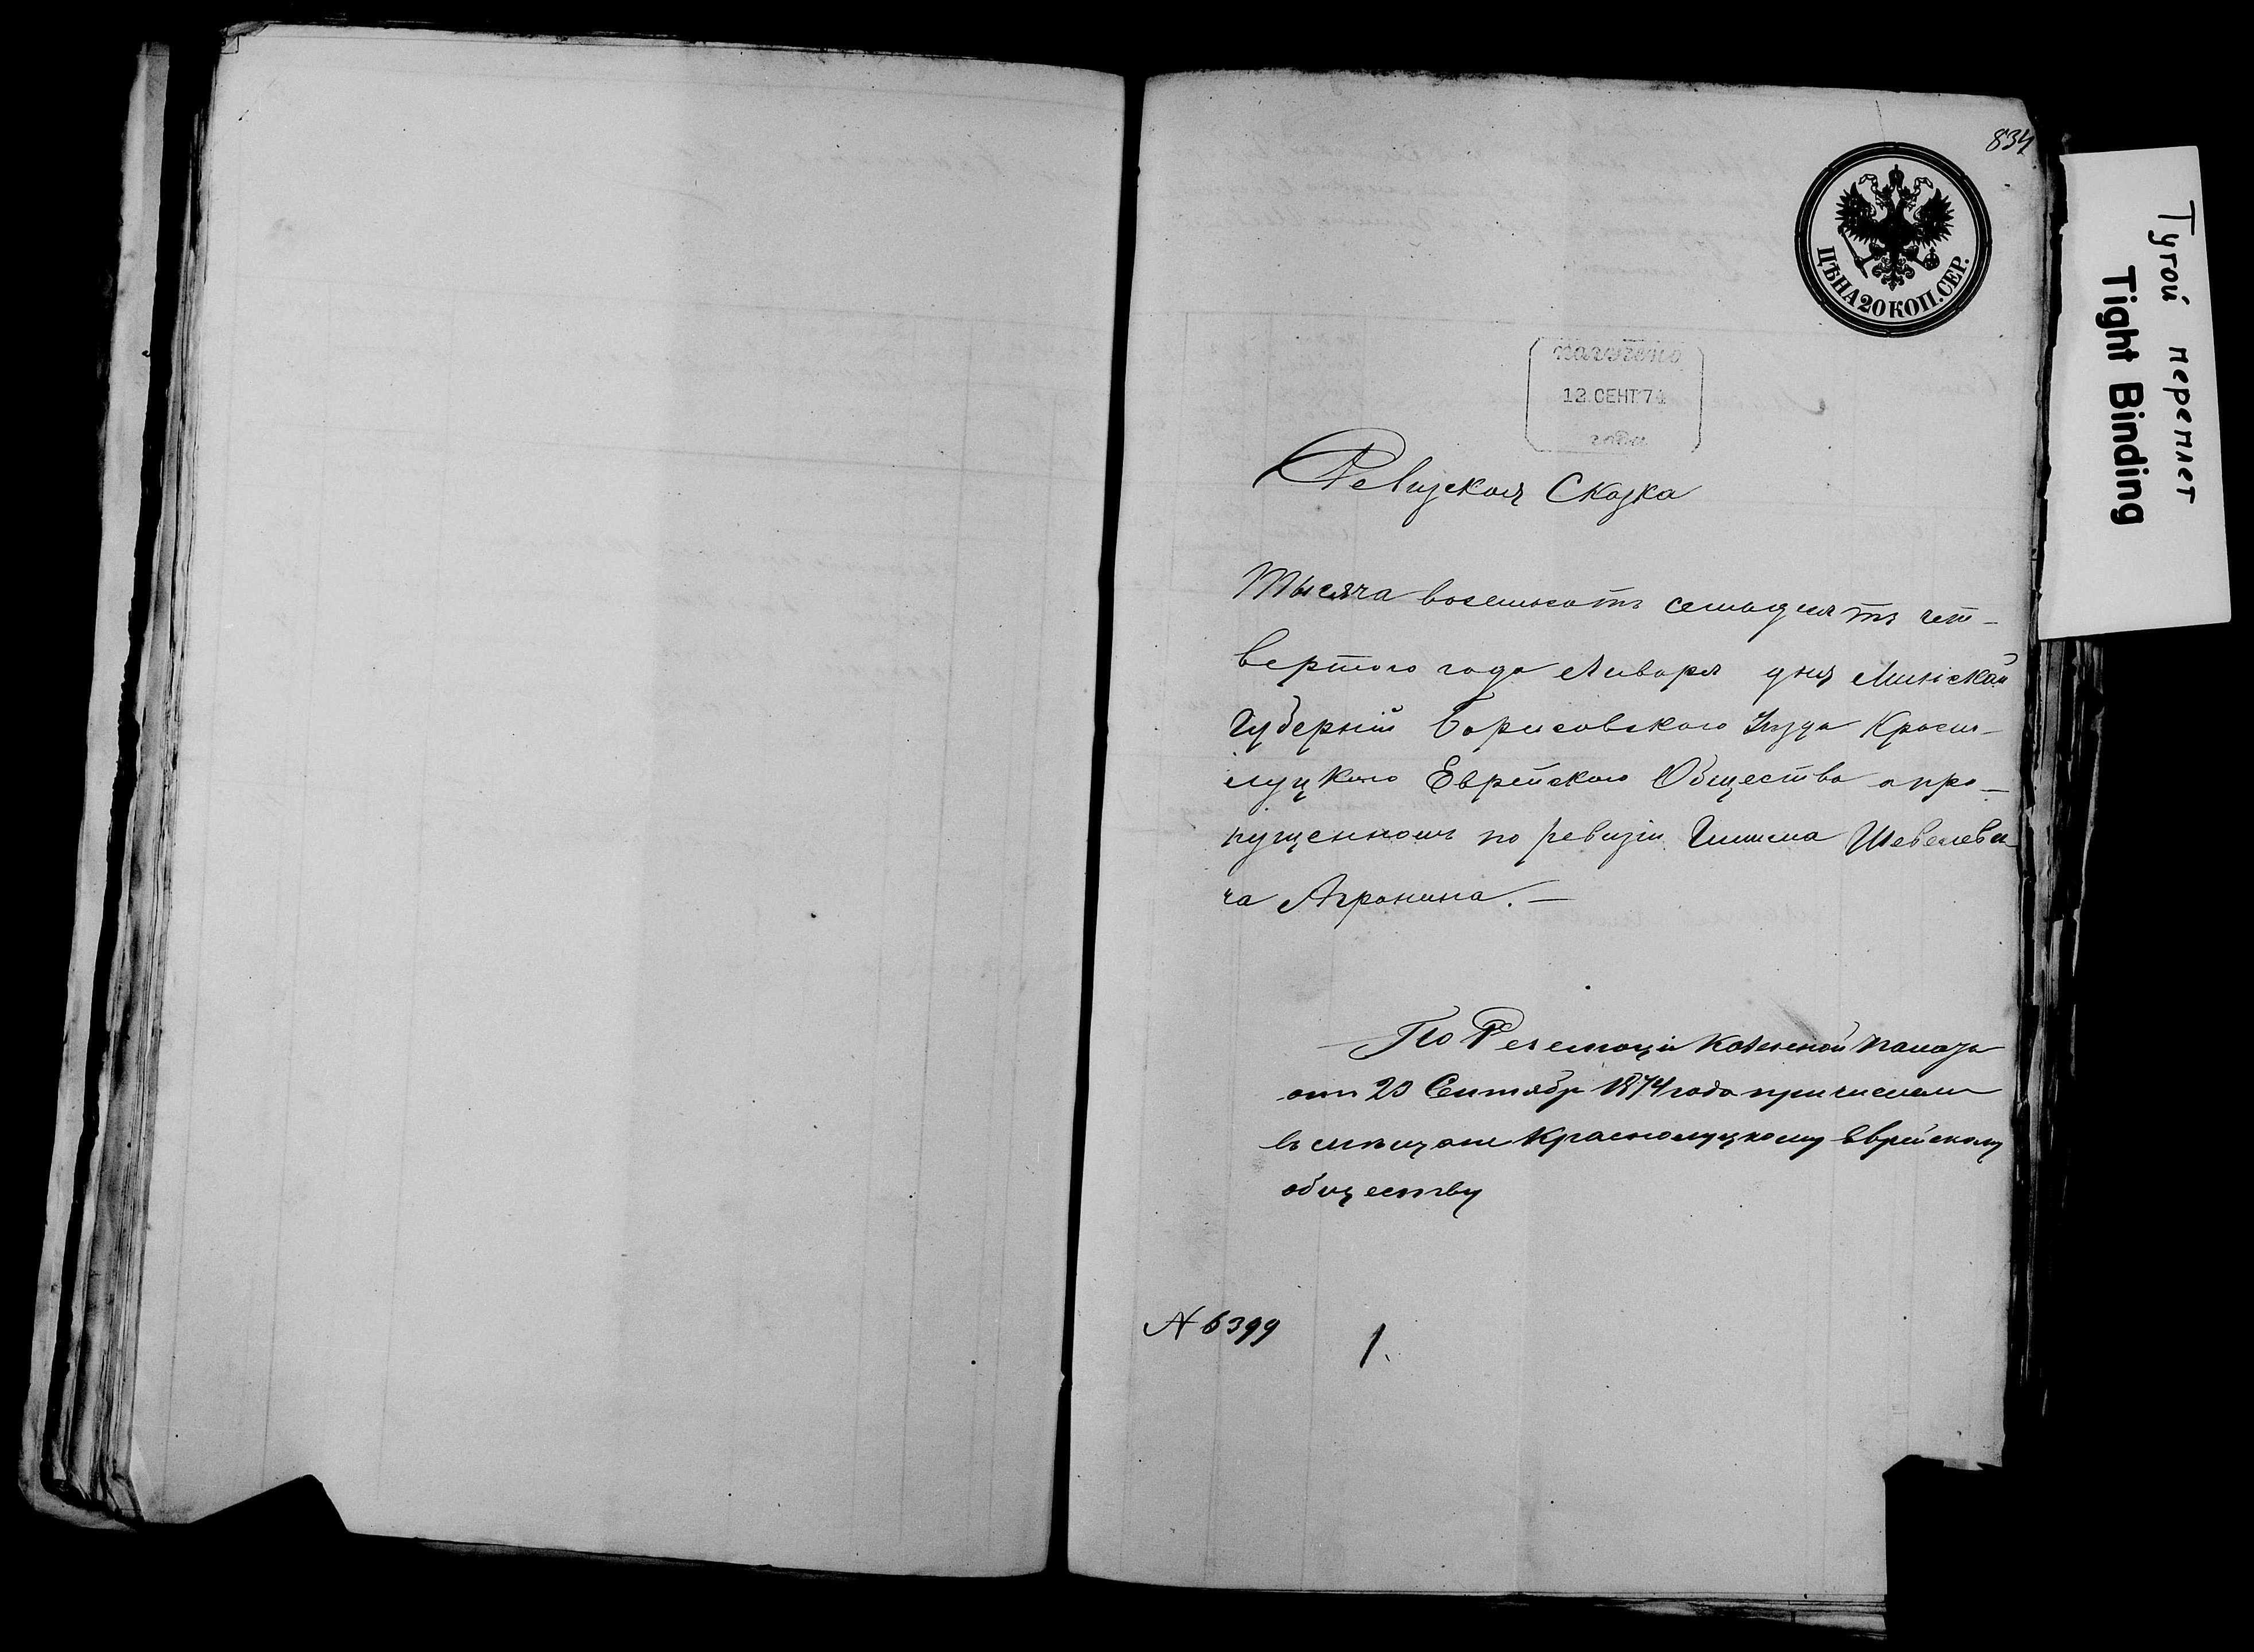 834
ЦѢНА 20 КОП. СЕР.
Тугой переплет
Tight Binding
получено
12 СЕНТ 74
года
Ревизская Сказка
Тысяча восемьсотъ семьдесятъ чет-
вертого года Января дня Минской
Губерніи Борисовского Уѣзда Красно-
луцкого Еврейского Общества о про-
пущенномъ по ревизіи Шевелеви-
ча Агронина. —
По Резолюціи Казенной Палаты
отъ 20 Сентябр 1874 года причислен
въ мѣщане Краснолуцкому Еврейскому
обществу
№ 6399
1.